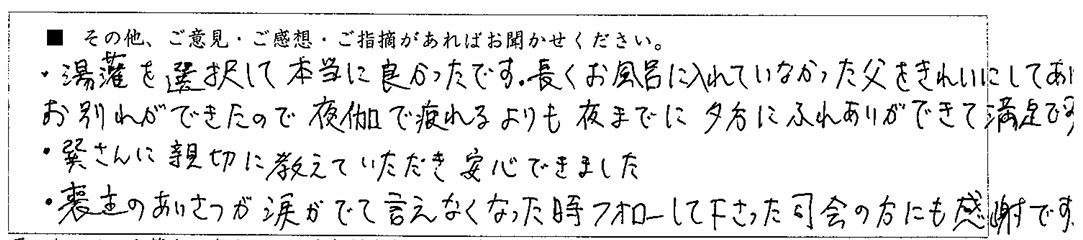 ■ その他、ご意見・ご感想・ご指摘があればお聞かせください。
・湯灌を選択して本当に良かったです。長くお風呂に入れていなかった父をきれいにしてあ
お別れができたので夜伽で疲れるよりも夜までに夕方にふれありができて満足です
・巽さんに親切に教えていただき安心できました
・喪主のあいさつが涙がでて言えなくなった時フォローして下さった司会の方にも感謝です。